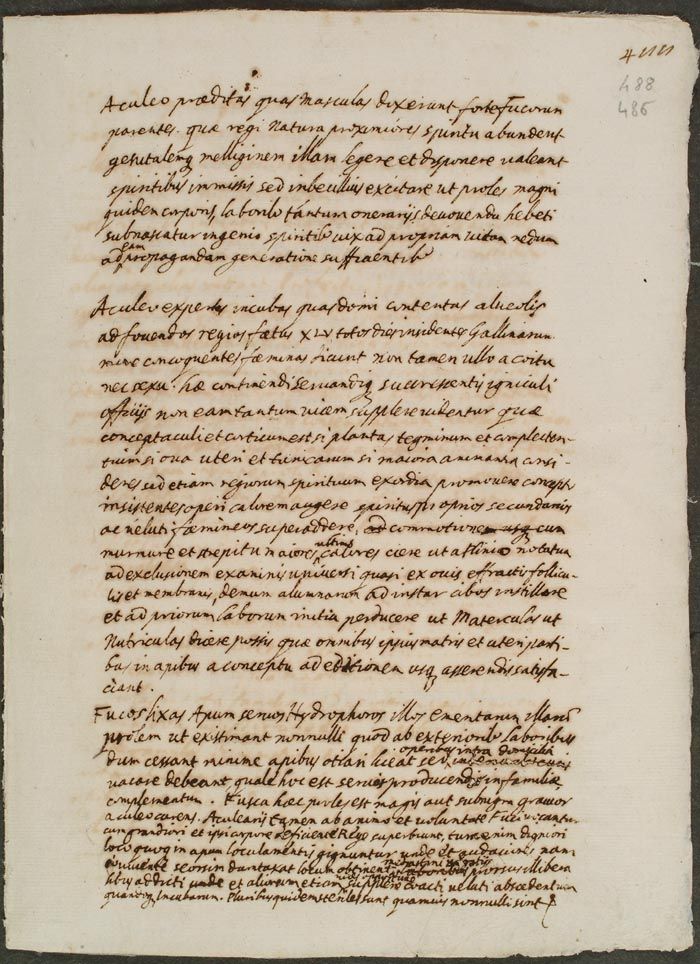 488
486
Aculeo præditas quas masculas dixerunt forte fucorum
parentes. quæ regi natura proximiores spiritu abundent
genitalemq melliginem illam legere et disponere valeant
spiritibus immissis sed imbecillius excitare ut proles magni
quidem corporis, laborib tantum onerarijs devovendu hebeti
subnascatur ingenio spiritib vix ad propriam vitam nedum
eam
ad propagandam generatione sufficientib
Aculeo expertes incubas quas domi contentas alveolis
ad fovendos regios fætus XLV totos dies insidentes Gallinarum
more concoquentes fæminas dicunt non tamen ullo a coitu
nec sexu. hæ continendi servandiq succrescentis igniculi
officijs non eam tantum vicem supplere videntur quæ
conceptaculi et corticum est si plantas tegminum et complecten-
tium si ova uteri et tunicarum si maiora animantia consi-
deres sed etiam regiorum spirituum exordia promovere conceptu
insistentes operi calorem augere spiritus proprios secundarios
ac veluti fæmineos superaddere, commotione
ultimo
murmure et strepitu maiores calores ciere ut a Plinio notatum
ad exclusionem examinis universi quasi ex ovis effractis follicu-
lis et membranis, demum alumnarum ad instar cibos instillare
et ad priorum laborum initia perducere ut Materculas ut
Nutriculas dicere possis quæ omnibus ipsius matris et uteri parti-
bus in apibus a conceptu ad editionem usq asserendis satisfa-
ciant.
Fucos lixas Apum servos Hydrophoros illos Ementarum illam
prolem ut existimant nonnulli quod ab exteriorib laboribus
operibus intra domicilia
dum cessant minime apibus otiari liceat sed
vacare debeant quale hoc est servis producendis in familiæ
complementum. Fusca hæc proles est magis aut subnigra gravior
aculeo carens. Aculeati tamen ab animo et voluntate Fuci vocantur
cum grandiori et ipsi corpore deficiente Rege superbiunt, tunc enim digniori
loco quoq in apum loculamentis gignuntur unde et audaciores nam
vivente seorsim dumtaxat locum obtinent laboribus prorsus illibera
libus addicti unde et aliorum etiam supplere coacti veluti abscedentium
quandoq Incubarum. Pluribus quidem steriles sunt quamvis nonnulli sint